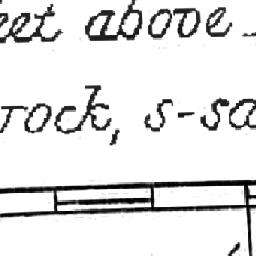 eet above
rock, s-sa